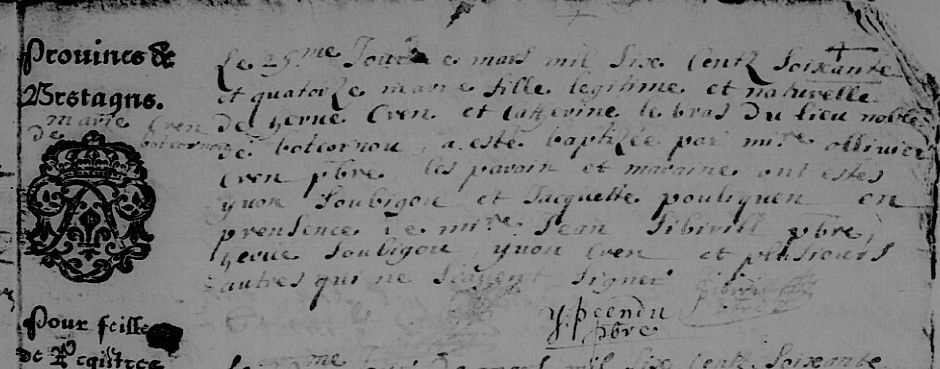 Prouince de
Bretagne.
marie Even
de botcornou
Le 25me Jour de mars mil six Centz soixante
et quatorze marie fille legitime et naturelle
de herue Even et Catherine le bras du lieu noble
de botcornou, a esté baptizée par mire ollivier
Even pbre les parain et maraine ont estes
yuon soubigou et Jacquette pouliquen en
presence de mire Jean Sibirill pbre,
herue soubigou, yuon Even et plusieurs
autres qui ne scauent signer
pbre
Pour feille
de Registres
me six Centz soixante